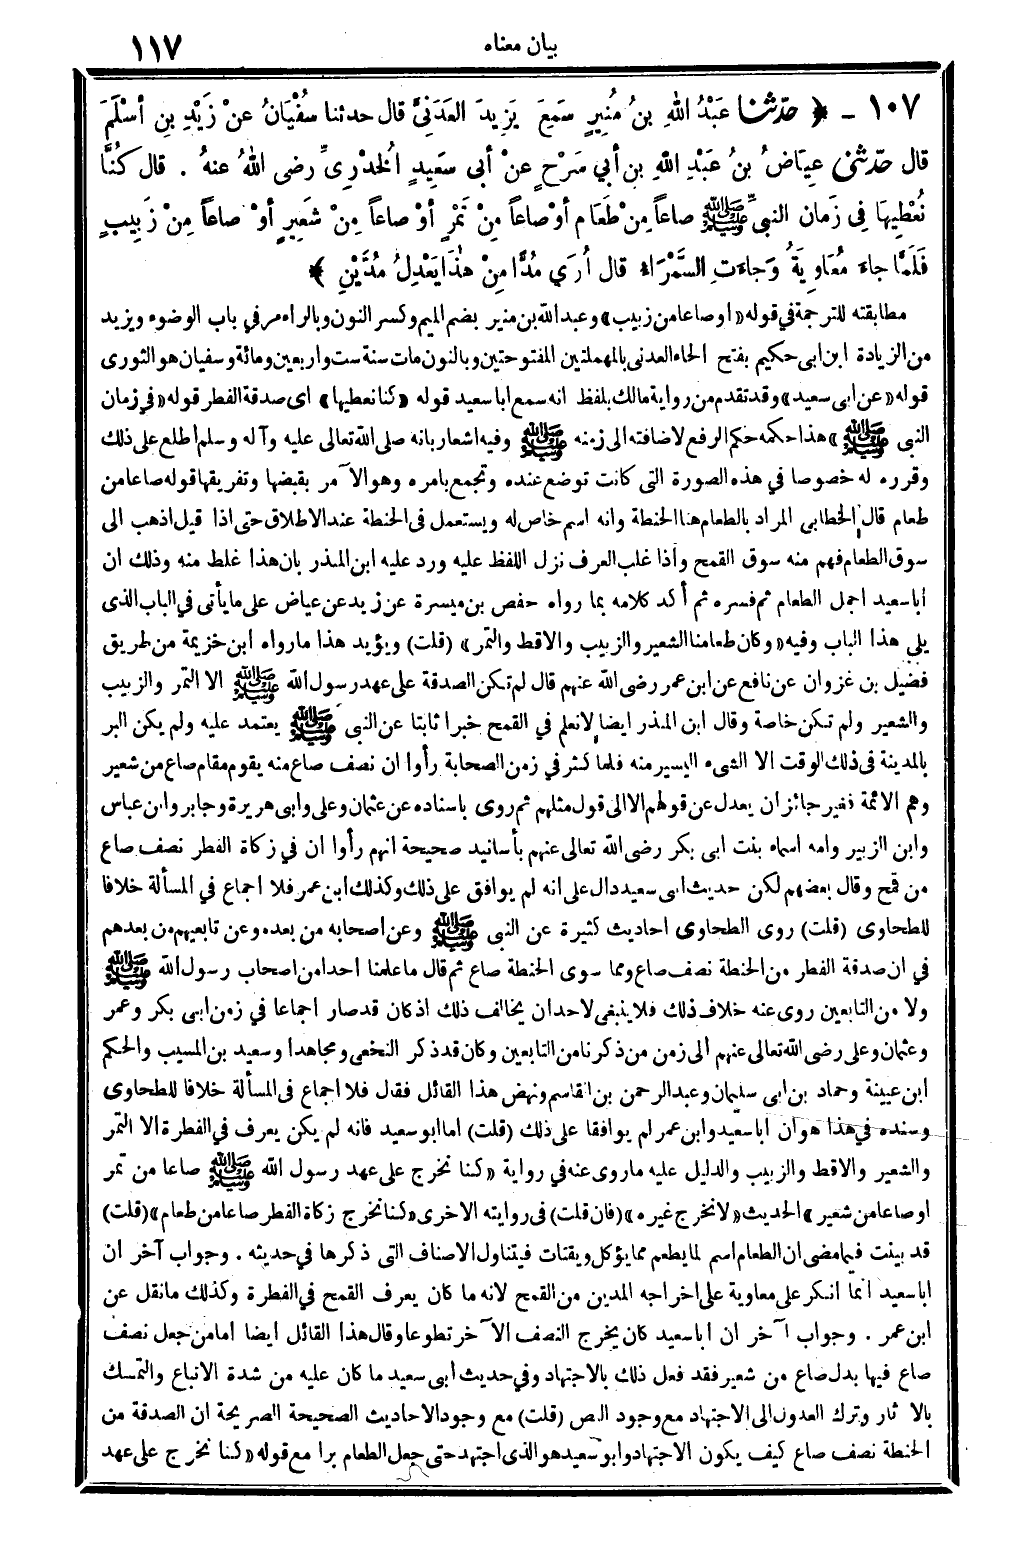 بيان معناه ١١٧
١٠٧ - ﴿ حدّثنا عَبْدُ اللهِ بنُ مُنِيرٍ سَمِعَ يَزِيدَ العَدَنِيَّ قال حدثنا سُفْيَانُ عنْ زَيْدِ بنِ أسْلَمَ
قال حدّثنى عِيَاضُ بنُ عَبْدِ اللهِ بنِ أبي سَرْحٍ عنْ أبى سَعِيدٍ الخُدْرِىِّ رضى اللهُ عنهُ . قال كُنَّا
نُعْطِيهَا فِى زَمانِ النبيِّ ﷺ صاعاً مِنْ طَعَامٍ أوْ صاعاً مِنْ تَمْرٍ أوْ صاعاً مِنْ شَعِيرٍ أوْ صاعاً مِنْ زَبِيبٍ
فَلَمَّا جاءَ مُعَاوِيَةُ وَجاءَتِ السَّمْرَاءُ قال أُرَي مُدًّا مِنْ هٰذَا يَعْدِلُ مُدَّيْنِ ﴾
مطابقته للترجمة في قوله «أوصاعا من زبيب» وعبد الله بن منير بضم الميم وكسر النون وبالراء مر في باب الوضوء ويزيد
من الزيادة ابن ابى حكيم بفتح الحاء العدنى بالمهملتين المفتوحتين وبالنون مات سنة ست واربعين ومائة وسفيان هو الثورى
قوله «عن ابى سعيد» وقد تقدم من رواية مالك بلفظ انه سمع ابا سعيد قوله «كنا نعطيها» اى صدقة الفطر قوله «في زمان
النبى ﷺ» هذا حكمه حكم الرفع لاضافته الى زمنه ﷺ وفيه اشعار بانه صلى الله تعالى عليه وآله وسلم اطلع على ذلك
وقرره له خصوصا في هذه الصورة التى كانت توضع عنده وتجمع بامره وهو الآمر بقبضها وتفريقها قوله صاعا من
طعام قال الخطابى المراد بالطعام هنا الحنطة وانه اسم خاص له ويستعمل فى الحنطة عند الاطلاق حتى اذا قيل اذهب الى
سوق الطعام فهم منه سوق القمح وأذا غلب العرف نزل اللفظ عليه ورد عليه ابن المنذر بان هذا غلط منه وذلك ان
أبا سعيد اجمل الطعام ثم فسره ثم أكد كلامه بما رواه حفص بن ميسرة عن زيد عن عياض على ما يأتى في الباب الذى
يلى هذا الباب وفيه «وكان طعامنا الشعير والزبيب والاقط والتمر» (قلت) ويؤيد هذا ما رواه ابن خزيمة من طريق
فضيل بن غزوان عن نافع عن ابن عمر رضى الله عنهم قال لم تكن الصدقة على عهد رسول الله ﷺ الا التمر والزبيب
والشعير ولم تكن خاصة وقال ابن المنذر ايضا لا نعلم في القمح خبرا ثابتا عن النبى ﷺ يعتمد عليه ولم يكن البر
بالمدينة فى ذلك الوقت الا الشىء اليسير منه فلما كثر في زمن الصحابة رأوا ان نصف صاع منه يقوم مقام صاع من شعير
وهم الائمة فغير جائز ان يعدل عن قولهم الا الى قول مثلهم ثم روى باسناده عن عثمان وعلى وابى هريرة وجابر وابن عباس
وابن الزبير وامه اسماء بنت ابى بكر رضى الله تعالى عنهم بأسانيد صحيحة انهم رأوا ان في زكاة الفطر نصف صاع
من قمح وقال بعضهم لكن حديث ابى سعيد دال على انه لم يوافق على ذلك وكذلك ابن عمر فلا اجماع في المسألة خلافا
للطحاوى (قلت) روى الطحاوى احاديث كثيرة عن النبى ﷺ وعن اصحابه من بعده وعن تابعيهم من بعدهم
في ان صدقة الفطر من الحنطة نصف صاع ومما سوى الحنطة صاع ثم قال ما علمنا احدا من اصحاب رسول الله ﷺ
ولا من التابعين روى عنه خلاف ذلك فلا ينبغى لاحد ان يخالف ذلك اذ كان قد صار اجماعا في زمن ابى بكر وعمر
وعثمان وعلى رضى الله تعالى عنهم الى زمن من ذكرنا من التابعين وكان قد ذكر النخعى ومجاهدا وسعيد بن المسيب والحكم
ابن عيينة وحماد بن ابى سليمان وعبد الرحمن بن القاسم ونهض هذا القائل فقال فلا اجماع فى المسألة خلافا للطحاوى
وسنده في هذا هو ان أبا سعيد وابن عمر لم يوافقا على ذلك (قلت) اما ابو سعيد فانه لم يكن يعرف في الفطرة الا التمر
والشعير والاقط والزبيب والدليل عليه ما روى عنه في رواية «كنا نخرج على عهد رسول الله ﷺ صاعا من تمر
او صاعا من شعير» الحديث «لا نخرج غيره» (فان قلت) فى روايته الاخرى «كنا نخرج زكاة الفطر صاعا من طعام» (قلت)
قد بينت فيما مضى ان الطعام اسم لما يطعم مما يؤكل ويقتات فيتناول الاصناف التى ذكرها في حديثه . وجواب آخر ان
ابا سعيد انما انكر على معاوية على اخراجه المدين من القمح لانه ما كان يعرف القمح في الفطرة وكذلك ما نقل عن
ابن عمر . وجواب آخر ان ابا سعيد كان يخرج النصف الآخر تطوعا وقال هذا القائل ايضا اما من جعل نصف
صاع فيها بدل صاع من شعير فقد فعل ذلك بالاجتهاد وفي حديث أبى سعيد ما كان عليه من شدة الاتباع والتمسك
بالآثار وترك العدول الى الاجتهاد مع وجود النص (قلت) مع وجود الاحاديث الصحيحة الصريحة ان الصدقة من
الحنطة نصف صاع كيف يكون الاجتهاد وابو سعيد هو الذى اجتهد حتى جعل الطعام برا مع قوله «كنا نخرج على عهد